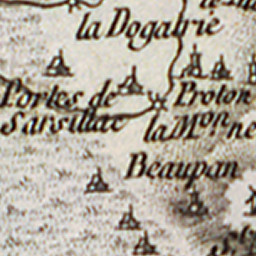 la Dogatrie
Portes de
Sarsillac
Proton
la Mon. ne
Beaupan